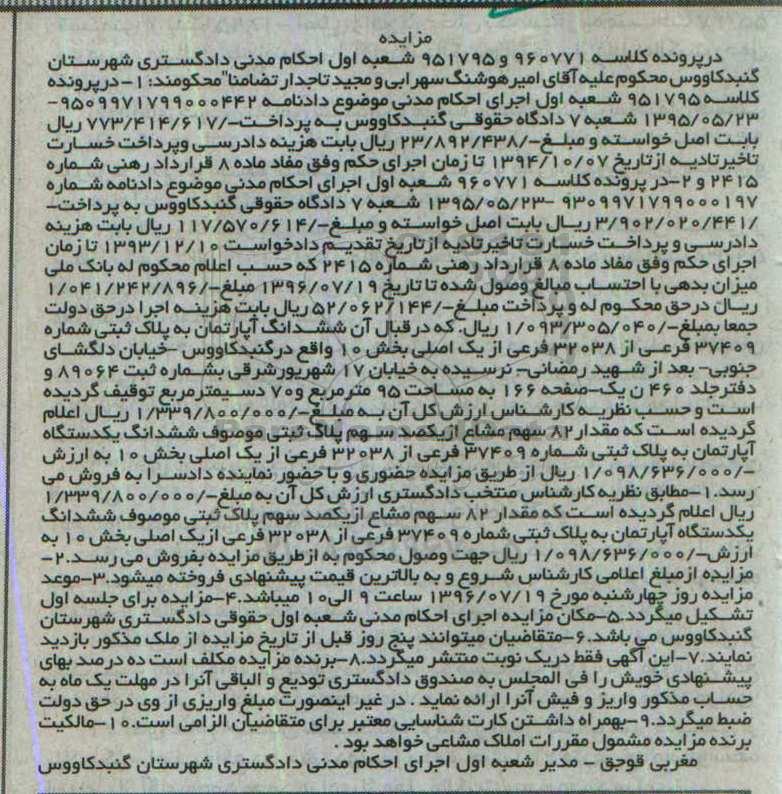 مزایده
درپرونده کلاسه ۹۶۰۷۷۱ و ۹۵۱۷۹۵ شعبه اول احکام مدنی دادگستری شهرستان
گنبدکاووس محکوم علیه آقای امیرهوشنگ سهرابی و مجید تاجدار تضامنا" محکومند: ۱-درپرونده
کلاسه ۹۵۱۷۹۵ شعبه اول اجرای احکام مدنی موضوع دادنامه ۹۵۰۹۹۷۱۷۹۹۰۰۰۴۴۲-
۱۳۹۵/۰۵/۲۳ شعبه ۷ دادگاه حقوقی گنبدکاووس به پرداخت-/۷۷۳/۴۱۴/۶۱۷ ریال
بابت اصل خواسته و مبلغ-/۲۳/۸۹۲/۴۳۸ ریال بابت هزینه دادرسی وپرداخت خسارت
تاخیرتادیه ازتاریخ ۱۳۹۴/۱۰/۰۷ تا زمان اجرای حکم وفق مفاد ماده ۸ قرارداد رهنی شماره
۲۴۱۵ و ۲-در پرونده کلاسه ۹۶۰۷۷۱ شعبه اول اجرای احکام مدنی موضوع دادنامه شماره
۹۳۰۹۹۷۱۷۹۹۰۰۰۱۹۷ -۱۳۹۵/۰۵/۲۳ شعبه ۷ دادگاه حقوقی گنبدکاووس به پرداخت-
/۳/۹۰۲/۰۲۰/۴۴۱ ریال بابت اصل خواسته و مبلغ-/۱۱۷/۵۷۰/۶۱۴ ریال بابت هزینه
دادرسی و پرداخت خسارت تاخیرتادیه ازتاریخ تقدیم دادخواست ۱۳۹۳/۱۲/۱۰ تا زمان
اجرای حکم وفق مفاد ماده ۸ قرارداد رهنی شماره ۲۴۱۵ که حسب اعلام محکوم له بانک ملی
میزان بدهی با احتساب مبالغ وصول شده تا تاریخ ۱۳۹۶/۰۷/۱۹ مبلغ-/۱/۰۴۱/۲۴۲/۸۹۶
ریال درحق محکوم له و پرداخت مبلغ-/۵۲/۰۶۲/۱۴۴ ریال بابت هزینه اجرا درحق دولت
جمعا بمبلغ-/۱/۰۹۳/۳۰۵/۰۴۰ ریال. که درقبال آن ششدانگ آپارتمان به پلاک ثبتی شماره
۳۷۴۰۹ فرعی از ۳۲۰۳۸ فرعی از یک اصلی بخش ۱۰ واقع درگنبدکاووس -خیابان دلگشای
جنوبی- بعد از شهید رمضانی- نرسیده به خیابان ۱۷ شهریورشرقی بشماره ثبت ۸۹۰۶۴ و
دفترجلد ۴۶۰ ن یک-صفحه ۱۶۶ به مساحت ۹۵ مترمربع و ۷۰ دسیمترمربع توقیف گردیده
است و حسب نظریه کارشناس ارزش کل آن به مبلغ-/۱/۳۳۹/۸۰۰/۰۰۰ ریال اعلام
گردیده است که مقدار ۸۲ سهم مشاع ازیکصد سهم پلاک ثبتی موصوف ششدانگ یکدستگاه
آپارتمان به پلاک ثبتی شماره ۳۷۴۰۹ فرعی از ۳۲۰۳۸ فرعی از یک اصلی بخش ۱۰ به ارزش
-/۱/۰۹۸/۶۳۶/۰۰۰ ریال از طریق مزایده حضوری و با حضور نماینده دادسرا به فروش می
رسد.۱-مطابق نظریه کارشناس منتخب دادگستری ارزش کل آن به مبلغ-/۱/۳۳۹/۸۰۰/۰۰۰
ریال اعلام گردیده است که مقدار ۸۲ سهم مشاع ازیکصد سهم پلاک ثبتی موصوف ششدانگ
یکدستگاه آپارتمان به پلاک ثبتی شماره ۳۷۴۰۹ فرعی از ۳۲۰۳۸ فرعی ازیک اصلی بخش ۱۰ به
ارزش-/۱/۰۹۸/۶۳۶/۰۰۰ ریال جهت وصول محکوم به ازطریق مزایده بفروش می رسد.۲-
مزایده ازمبلغ اعلامی کارشناس شروع و به بالاترین قیمت پیشنهادی فروخته میشود.۳-موعد
مزایده روز چهارشنبه مورخ ۱۳۹۶/۰۷/۱۹ ساعت ۹ الی۱۰ میباشد.۴-مزایده برای جلسه اول
تشکیل میگردد.۵-مکان مزایده اجرای احکام مدنی شعبه اول حقوقی دادگستری شهرستان
گنبدکاووس می باشد.۶-متقاضیان میتوانند پنج روز قبل از تاریخ مزایده از ملک مذکور بازدید
نمایند.۷-این آگهی فقط دریک نوبت منتشر میگردد.۸-برنده مزایده مکلف است ده درصد بهای
پیشنهادی خویش را فی المجلس به صندوق دادگستری تودیع و الباقی آنرا در مهلت یک ماه به
حساب مذکور واریز و فیش آنرا ارائه نماید . در غیر اینصورت مبلغ واریزی از وی در حق دولت
ضبط میگردد.۹-بهمراه داشتن کارت شناسایی معتبر برای متقاضیان الزامی است.۱۰-مالکیت
برنده مزایده مشمول مقررات املاک مشاعی خواهد بود .
مغربی قوجق - مدیر شعبه اول اجرای احکام مدنی دادگستری شهرستان گنبدکاووس